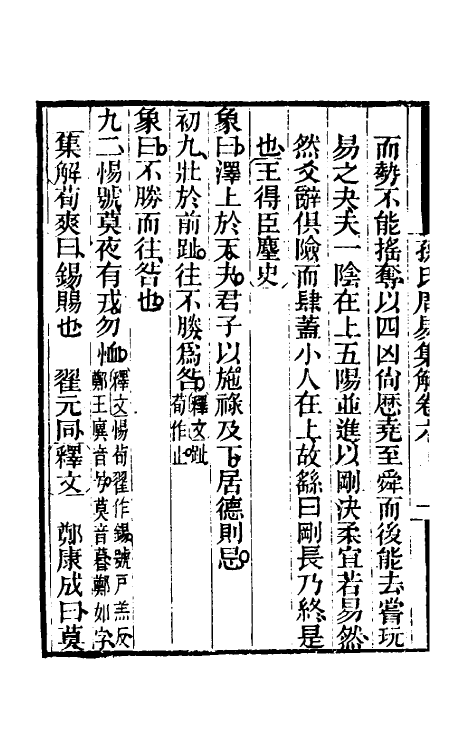 而勢不能搖奪以四凶尙歷堯至舜而後能去嘗玩
易之夬夫一陰在上五陽並進以剛決柔宜若易然
然爻辭俱險而肆蓋小人在上故繇曰剛長乃終是
也王得臣麈史
象曰澤上於天夬君子以施祿及下居德則忌
初九壯於前趾往不勝爲咎釋文趾荀作止
象曰不勝而往咎也
九二惕號莫夜有戎勿恤釋文惕荀翟作錫號戶羔反鄭王廙音號莫音暮鄭如字
集解荀爽曰錫賜也 翟元同釋文 鄭康成曰莫
孫氏周易集解卷六 一